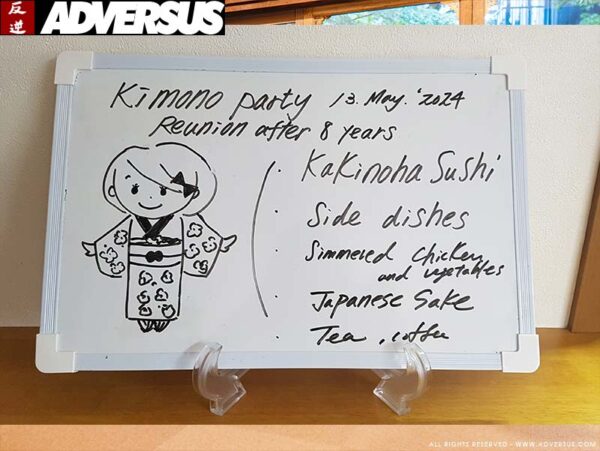 反逆 ADVERSUS
Kimono party 13. May. '2024
Reunion after 8 years
· Kakinoha Sushi
· Side dishes
· Simmered chicken
and vegetables
· Japanese Sake
· Tea , coffee
ALL RIGHTS RESERVED - WWW.ADVERSUS.COM